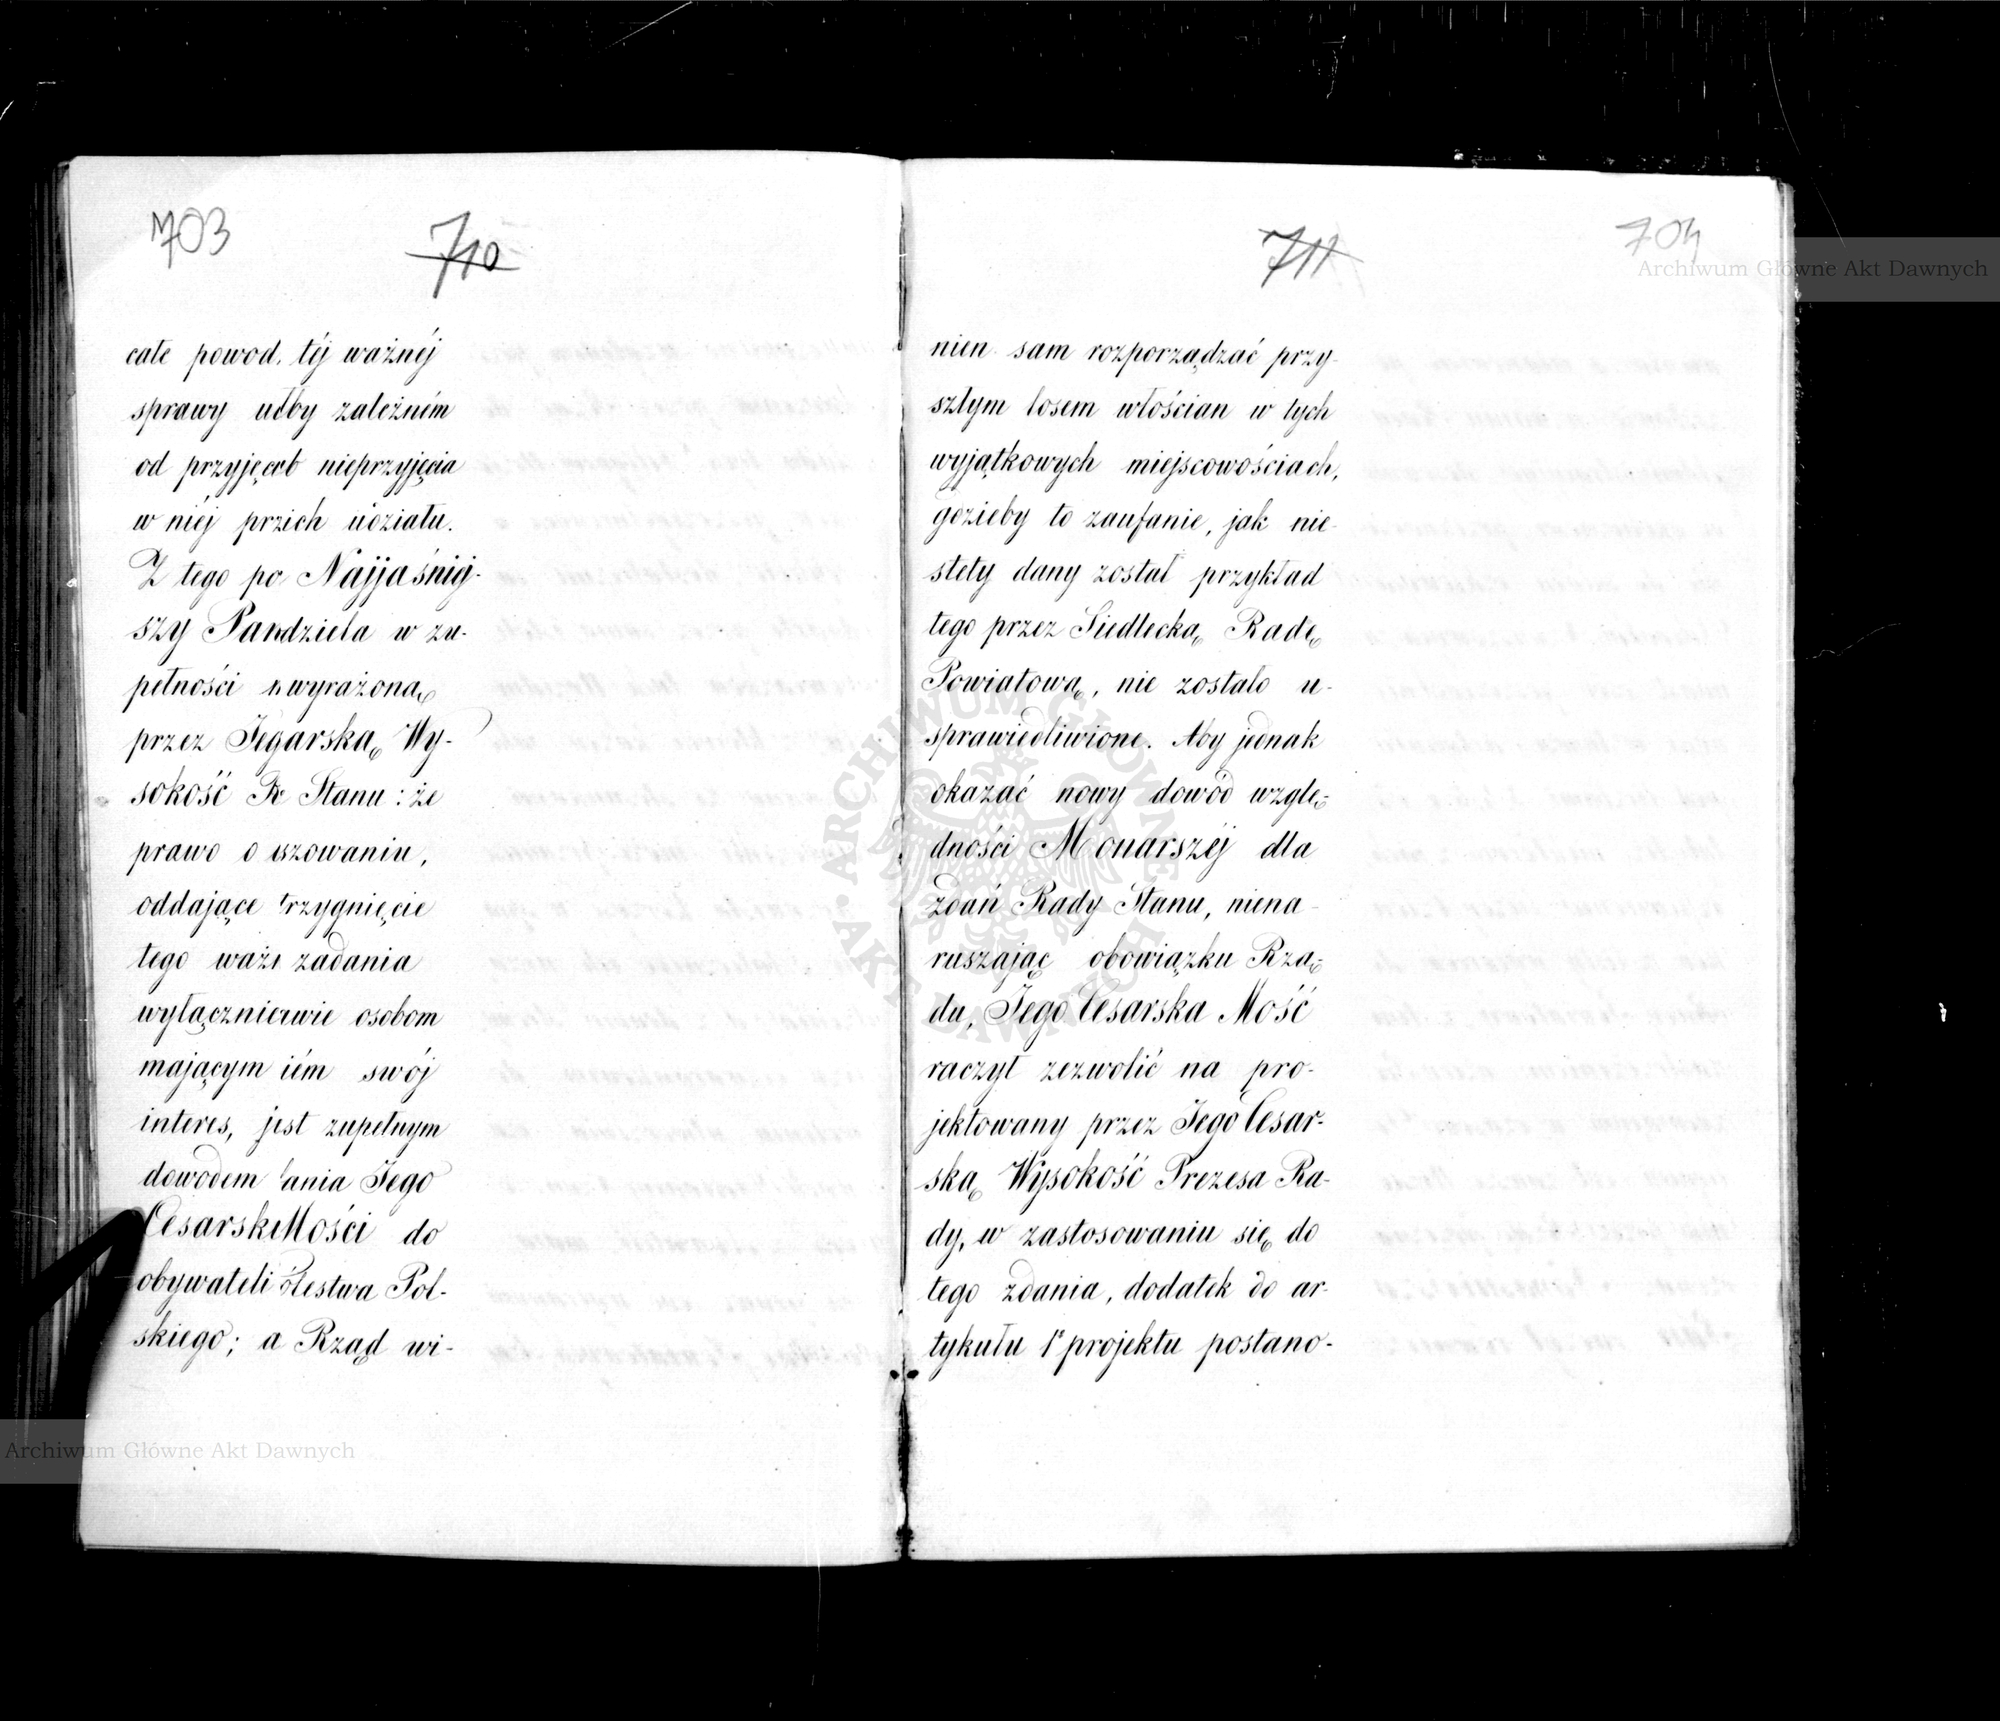 703
710
całe powod. téj ważnéj
sprawy
zależném
od nieprzyjęcia
w niéj udziału.
Z tego po Najjaśniéj-
szy Pan w zu-
pełności wyrażoną
przez Cesarską Wy-
sokość Stanu: że
prawo o
oddające
tego zadania
osobom
mającym swój
interes, jest zupełnym
dowodem Jego
Mości do
obywateli Pol-
skiego; a Rząd wi-
711
704
nien sam rozporządzać przy-
szłym losem włościan w tych
wyjątkowych miejscowościach,
gdzieby to zaufanie, jak nie-
stety dany został przykład
tego przez Siedlecką Radę
Powiatową, nie zostało u-
sprawiedliwione. Aby jednak
okazać nowy dowód wzglę-
dności Monarszéj dla
zdań Rady Stanu, niena-
ruszając obowiązku Rzą-
du, Jego Cesarska Mość
raczył zezwolić na pro-
jektowany przez Jego Cesar-
ską Wysokość Prezesa Ra-
dy, w zastosowaniu się do
tego zdania, dodatek do ar-
tykułu 1º projektu postano-
Archiwum Główne Akt Dawnych
Archiwum Główne Akt Dawnych
ARCHIWUM GŁÓWNE
AKT DAWNYCH